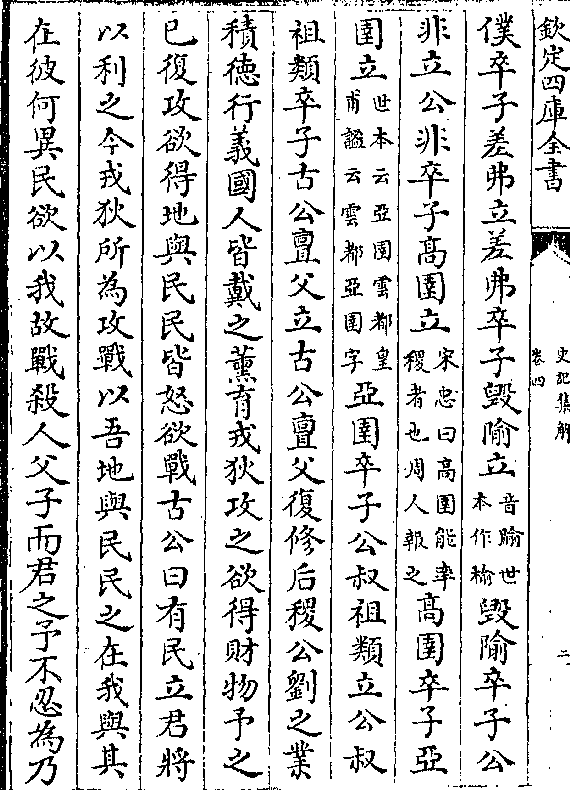 欽定四庫全書
史記集解
卷四
二
僕卒子差弗立差弗卒子毀隃立音隃世本作榆毀隃卒子公
非立公非卒子髙圉立宋忠曰高圉能率稷者也周人報之髙圉卒子亞
圉立世本云亞圉雲都皇甫謐云雲都亞圉字亞圉卒子公叔祖類立公叔
祖類卒子古公亶父立古公亶父復修后稷公劉之業
積德行義國人皆戴之薰育戎狄攻之欲得財物予之
已復攻欲得地與民民皆怒欲戰古公曰有民立君將
以利之今戎狄所為攻戰以吾地與民民之在我與其
在彼何異民欲以我故戰殺人父子而君之予不忍為乃